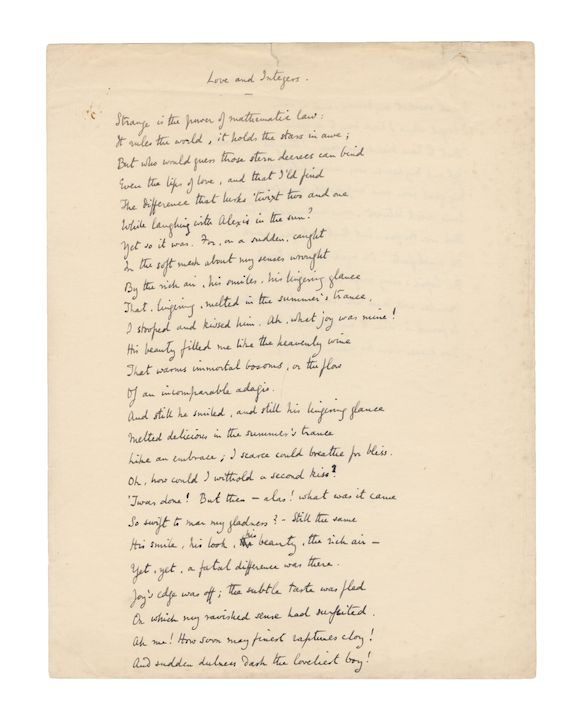 Love and Integers.
Strange is the power of mathematic law:
It rules the world, it holds the stars in awe;
But who would guess those stern decrees can bind
Even the lips of love, and that I'ld find
The difference that lurks 'twixt two and one
While laughing with Alexis in the sun?
Yet so it was. For, on a sudden, caught
In the soft mesh about my senses wrought
By the rich air, his smiles, his lingering glance
That, lingering, melted in the summer's trance,
I stooped and kissed him. Ah, what joy was mine!
His beauty filled me like the heavenly wine
That warms immortal bosoms, or the flow
Of an incomparable adagio.
And still he smiled, and still his lingering glance
Melted delicious in the summer's trance
Like an embrace; I scarce could breathe for bliss.
Oh, how could I withold a second kiss?
'Twas done! But then – alas! what was it came
So swift to mar my gladness? – Still the same
His smile, his look, his beauty, the rich air –
Yet, yet, a fatal difference was there.
Joy's edge was off; the subtle taste was fled
On which my ravished sense had surfeited.
Ah me! How soon may finest raptures cloy!
And sudden dulness dash the loveliest boy!